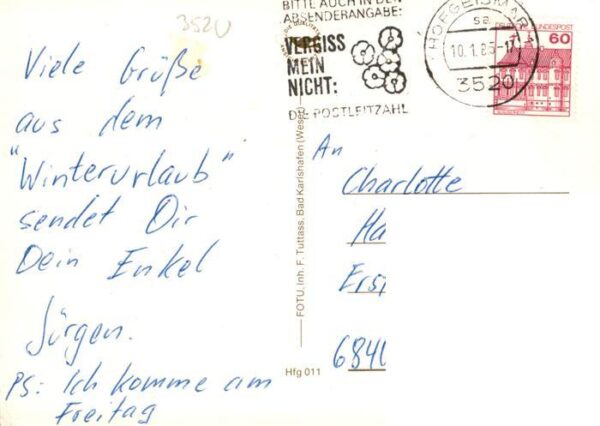 3520
BITTE AUCH IN DER
ABSENDERANGABE:
VERGISS
MEIN
NICHT:
DIE POSTLEITZAHL
HOFGEISMAR 1
sa
10.1.86-17
3520
DEUTSCHE BUNDESPOST
60
Viele Grüße
aus dem
"Winterurlaub"
sendet Dir
Dein Enkel
Jürgen.
PS: Ich komme am
Freitag
FOTU, Inh. F. Tuttass, Bad Karlshafen (Weser)
Hfg 011
An
Charlotte
Ha
Ers
684